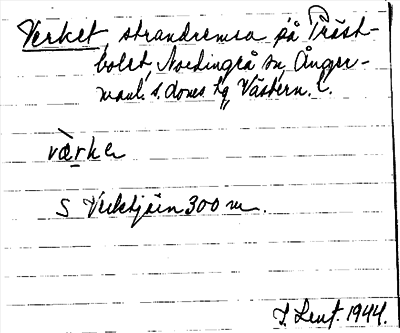 Verket, strandremsa på Präst-
bolet, Nordingrå sn, Ånger-
manl. s. doms. tg, Västern. l.
värke
S Verktjärn 300 m.
1944.